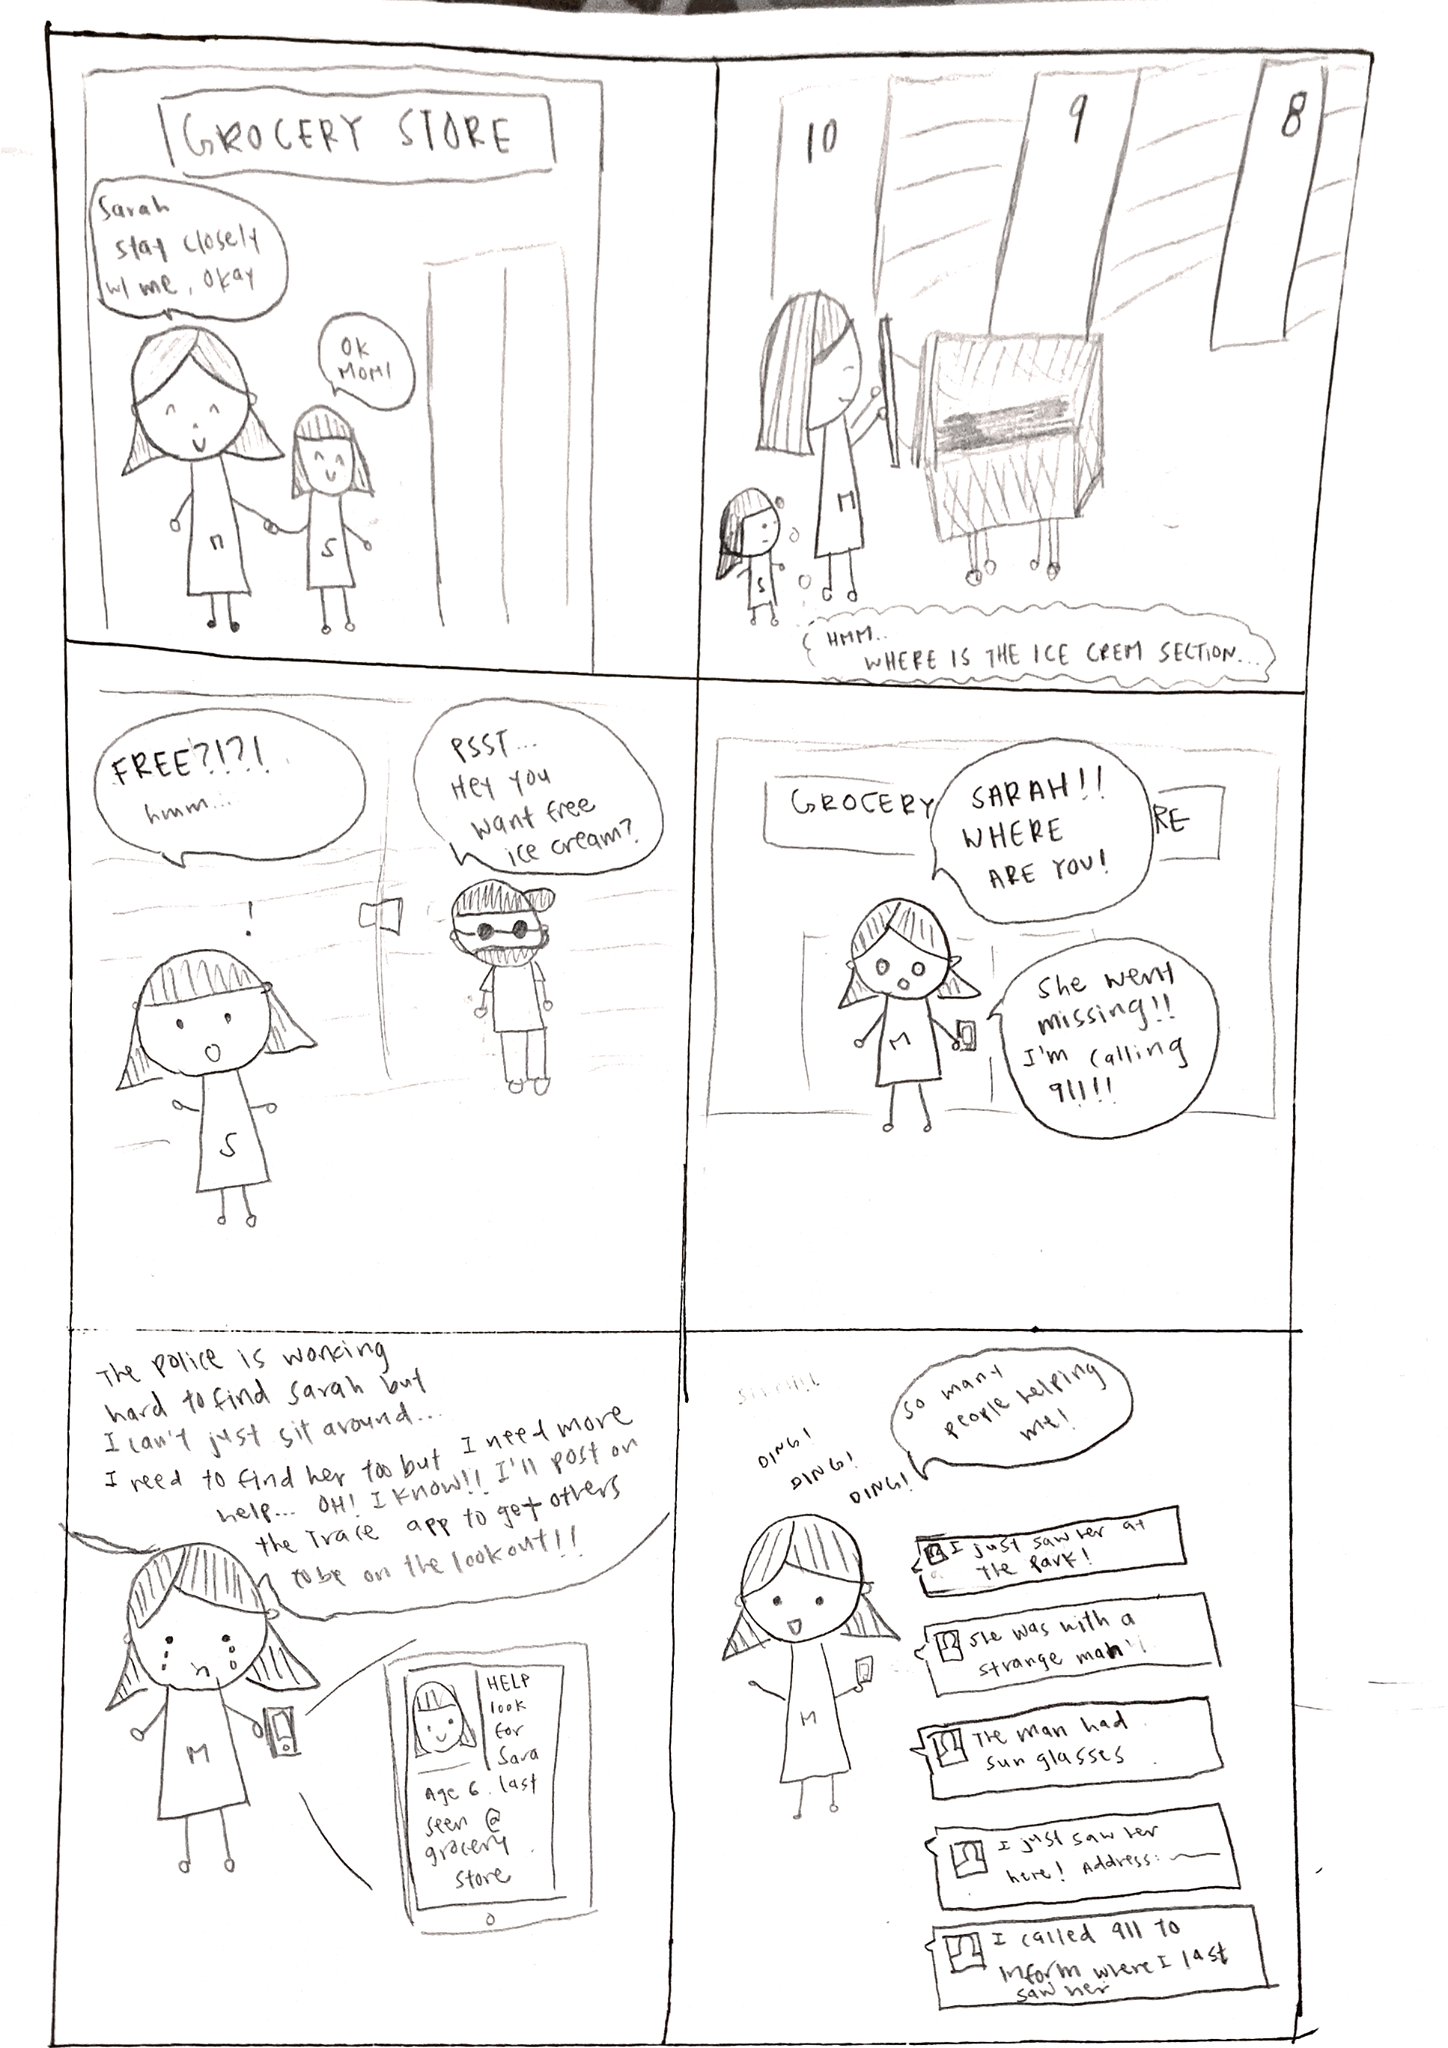 GROCERY STORE
Sarah
stay closely
w/ me, okay
OK
MOM!
n
S
10
9
8
M
S
HMM..
WHERE IS THE ICE CREM SECTION...
FREE?!?!
hmm...
PSST...
Hey you
want free
ice cream?
!
S
GROCERY
RE
SARAH!!
WHERE
ARE YOU!
She went
missing!!
I'm calling
911!!
M
The police is working
hard to find Sarah but
I can't just sit around...
I need to find her too but I need more
help... OH! I KNOW!! I'll post on
the Trace app to get others
to be on the lookout!!
M
HELP
look
for
Sara
Age 6. last
seen @
grocery
store
So many
people helping
me!
DING!
DING!
DING!
M
I just saw her at
the park!
She was with a
strange man!
The man had
sunglasses
I just saw her
here! Address:
I called 911 to
inform where I last
saw her